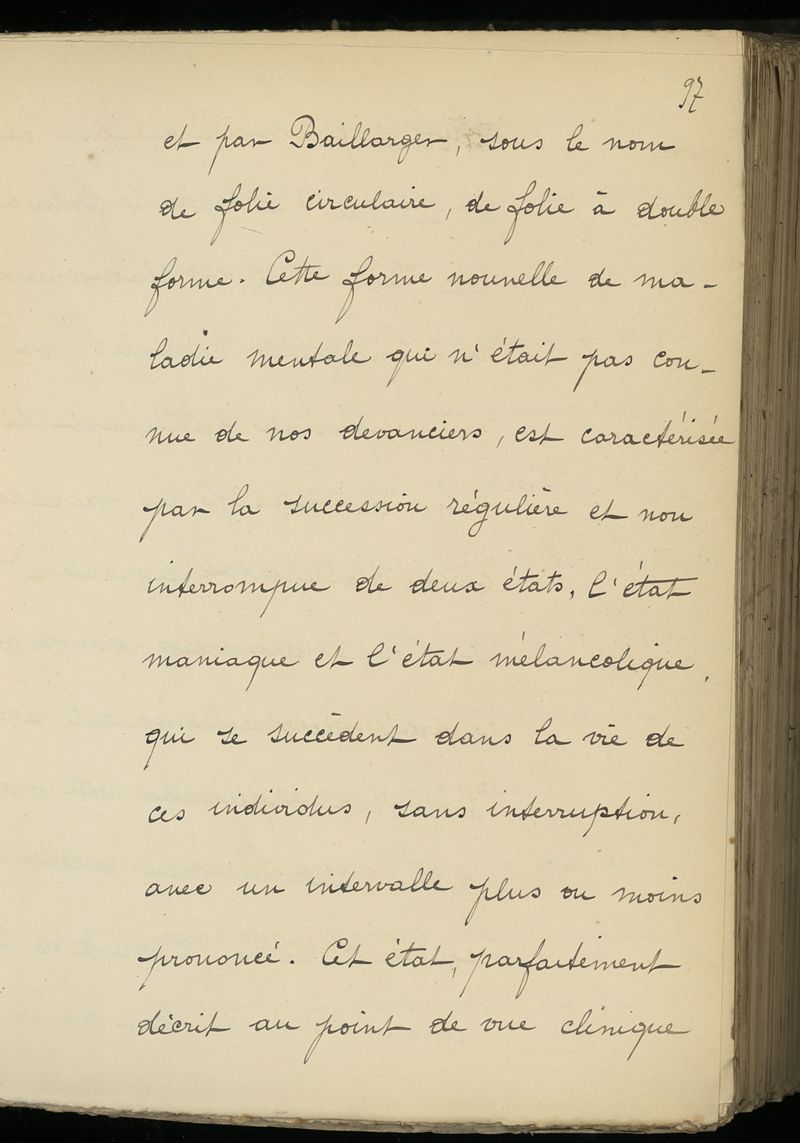 97
et par Baillarger, sous le nom
de folie circulaire, de folie à double
forme. Cette forme nouvelle de ma-
ladie mentale qui n'était pas con-
nue de nos devanciers, est caractérisée
par la succession régulière et non
interrompue de deux états, l'état
maniaque et l'état mélancolique,
qui se succèdent dans la vie de
ces individus, sans interruption,
avec un intervalle plus ou moins
prononcé. Cet état, parfaitement
décrit au point de vue clinique